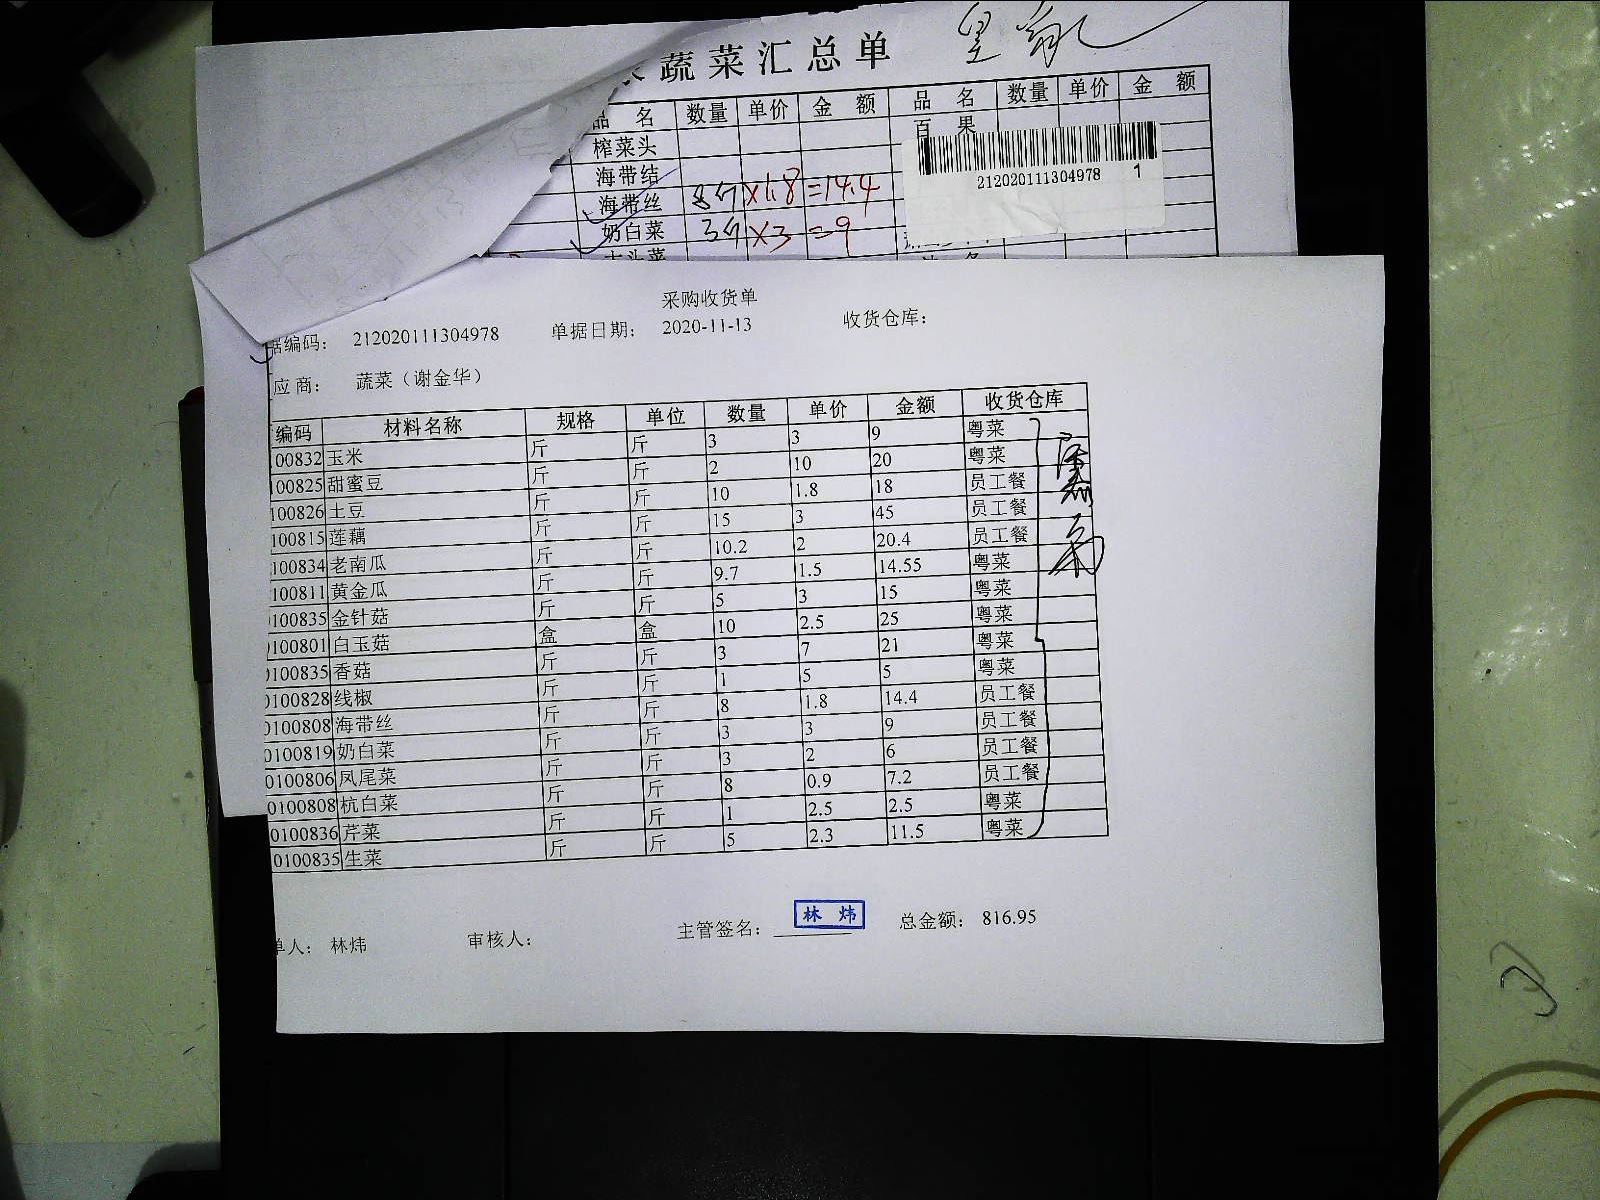 蔬菜汇总单
品 名 数量 单价 金 额 品 名 数量 单价 金 额
榨菜头 百 果
海带结
海带丝 8斤 ×1.8 =14.4
奶白菜 3斤 ×3 =9
212020111304978 1
采购收货单
据编码: 212020111304978 单据日期: 2020-11-13 收货仓库:
应商: 蔬菜（谢金华）
编码 材料名称 规格 单位 数量 单价 金额 收货仓库
100832 玉米 斤 斤 3 3 9 粤菜
100825 甜蜜豆 斤 斤 2 10 20 粤菜
100826 土豆 斤 斤 10 1.8 18 员工餐
100815 莲藕 斤 斤 15 3 45 员工餐
100834 老南瓜 斤 斤 10.2 2 20.4 员工餐
100811 黄金瓜 斤 斤 9.7 1.5 14.55 粤菜
100835 金针菇 斤 斤 5 3 15 粤菜
0100801 白玉菇 盒 盒 10 2.5 25 粤菜
0100835 香菇 斤 斤 3 7 21 粤菜
0100828 线椒 斤 斤 1 5 5 粤菜
0100808 海带丝 斤 斤 8 1.8 14.4 员工餐
0100819 奶白菜 斤 斤 3 3 9 员工餐
0100806 凤尾菜 斤 斤 3 2 6 员工餐
0100808 杭白菜 斤 斤 8 0.9 7.2 员工餐
0100836 芹菜 斤 斤 1 2.5 2.5 粤菜
0100835 生菜 斤 斤 5 2.3 11.5 粤菜
单人: 林炜 审核人: 主管签名: 林 炜 总金额: 816.95